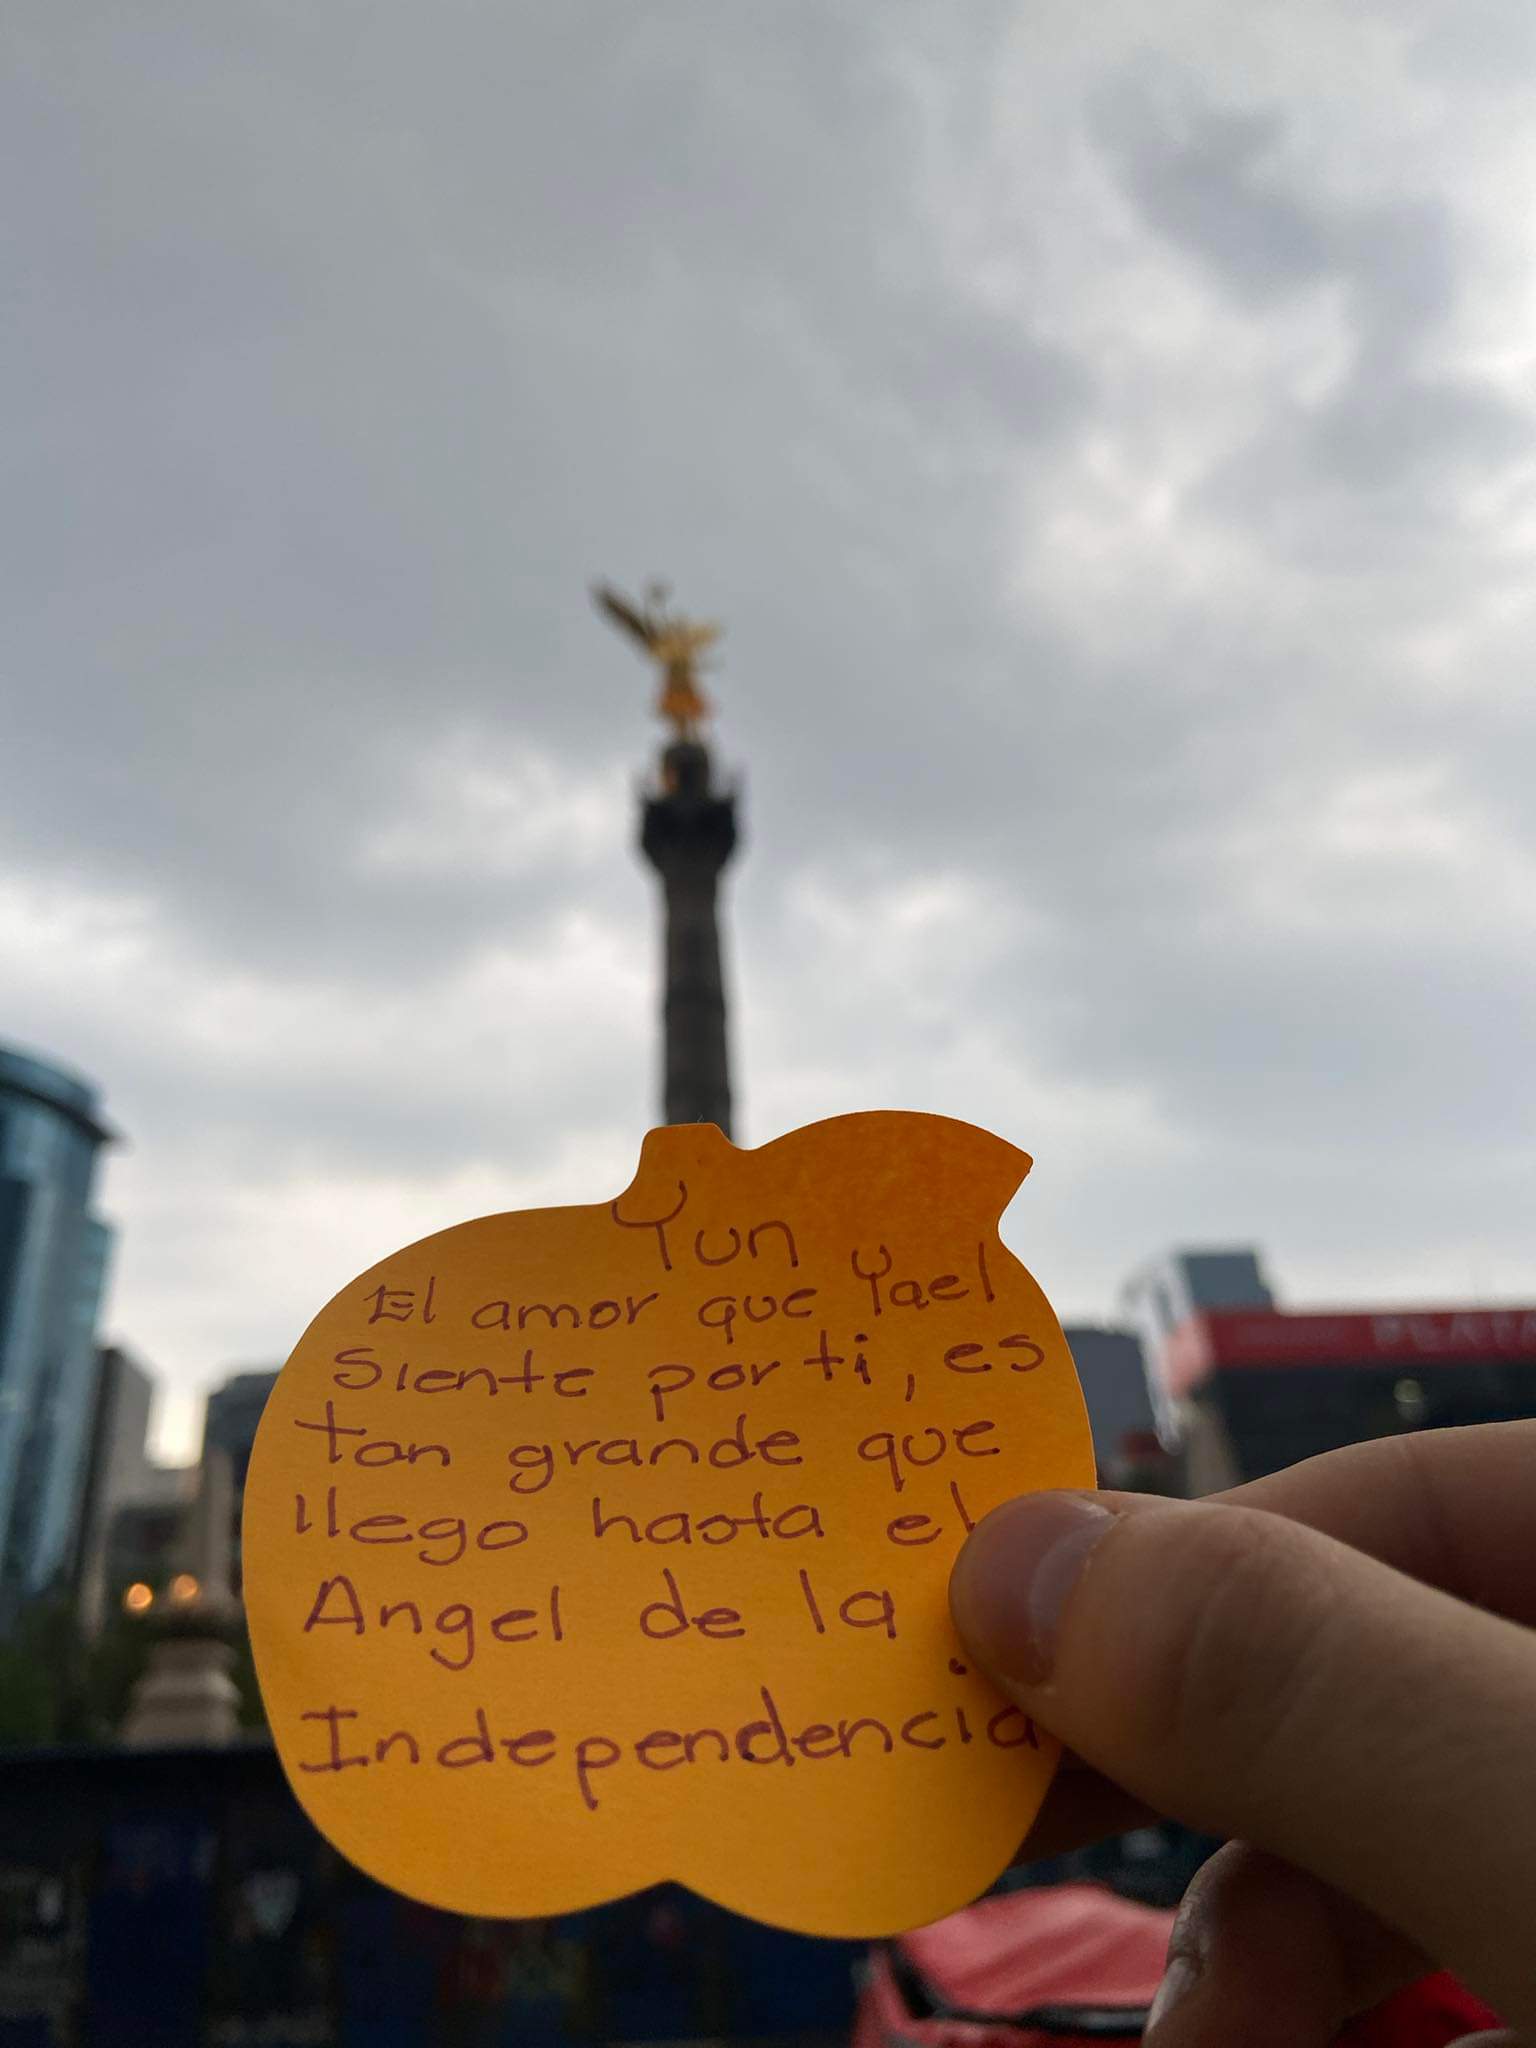 Yun
El amor que Yael
siente por ti, es
tan grande que
llego hasta el
Angel de la
Independencia